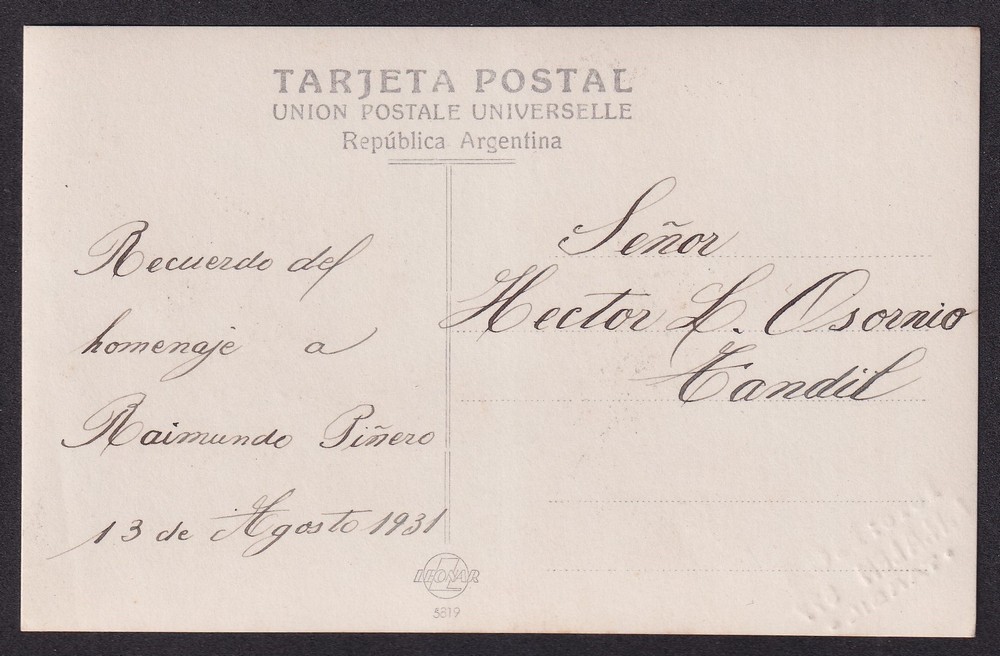 TARJETA POSTAL
UNION POSTALE UNIVERSELLE
República Argentina
Recuerdo del
homenaje a
Raimundo Piñero
13 de Agosto 1931
Señor
Hector L. Osornio
Tandil
LEONAR
5819